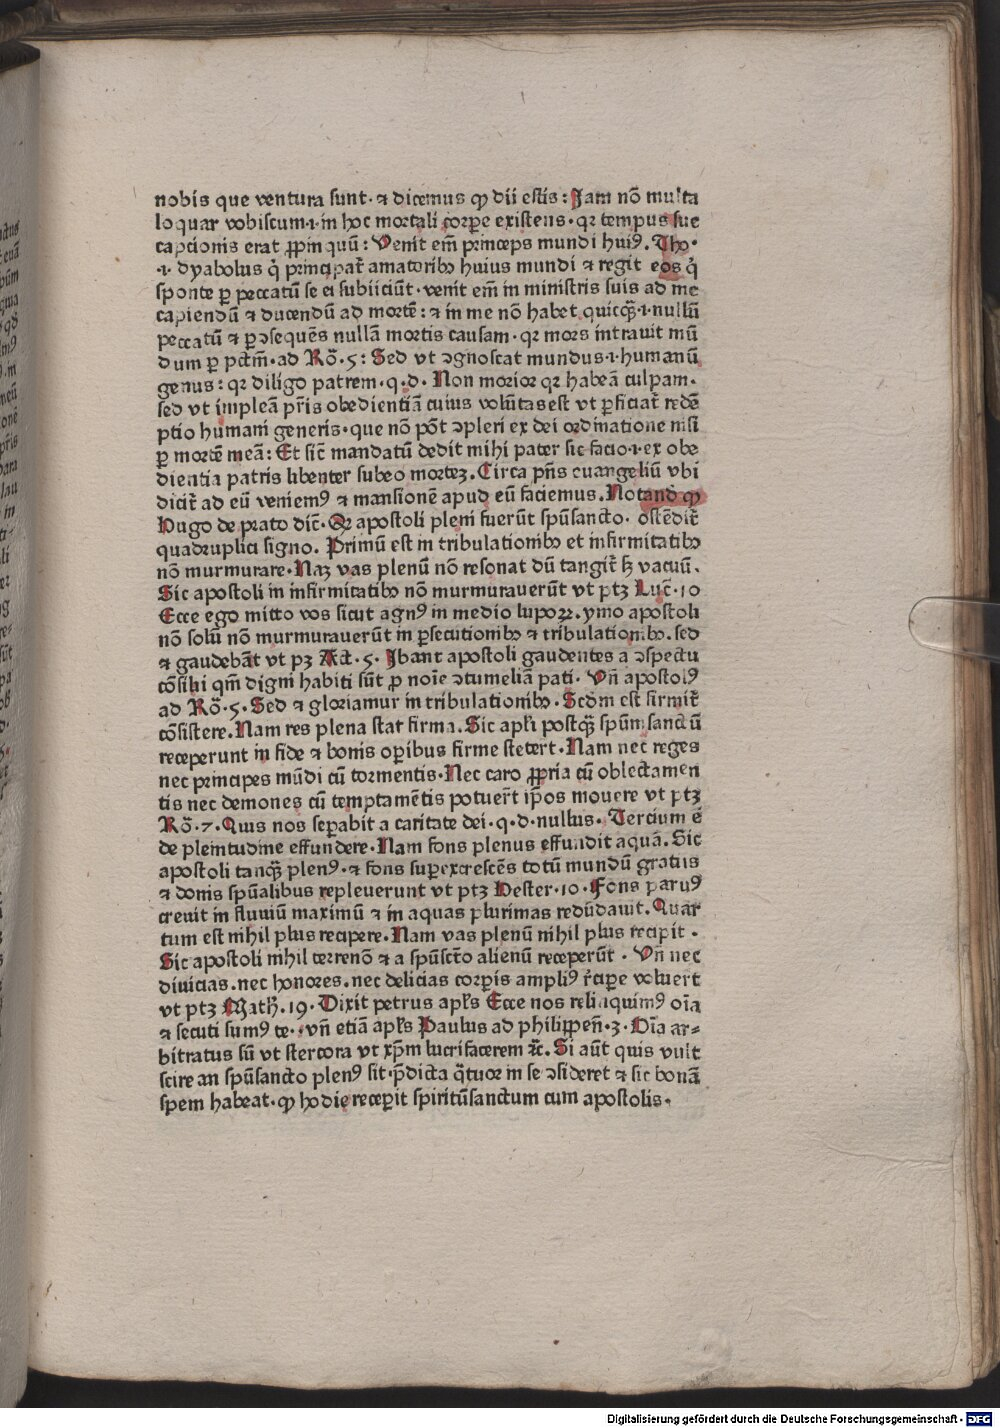 nobis que ventura sunt· ⁊ dicemus ꝙ dii estis: Jam nō multa
loquar vobiscum·i·in hoc mortali corꝑe existens· qꝛ tempus sue
captionis erat ꝓpinquū: Venit em̄ princeps mundi huiꝰ. Tho·
·i· dyabolus q̇ principat᷑ amatoribꝫ huius mundi ⁊ regit eos q̇
sponte ꝑ peccatū se ei subiiciūt· venit em̄ in ministris suis ad me
capiendū ⁊ ducendū ad mortē: ⁊ in me nō habet quicqꝫ̄·i·nullū
peccatū ⁊ ꝑ ↄsequēs nullā mortis causam· qꝛ mors intrauit mū
dum ꝑ pctm̄·ad Rō·5: Sed vt ↄgnoscat mundus·i·humanū
genus: qꝛ diligo patrem·q·d· Non morior qꝛ habeā culpam·
sed vt impleā pr̄is obedientiā cuius volūtas est vt ꝑficiat᷑ redē
ptio humani generis· que nō pōt ↄpleri ex dei ordinatione nisi
ꝑ mortē meā: Et sic̄ mandatū dedit mihi pater sic facio·i·ex obe
dientia patris libenter subeo morteꝫ. Circa pn̄s euangeliū vbi
dicit᷑ ad eū veniemꝰ ⁊ mansionē apud eū faciemus. Notand̄ ꝙ
Hugo de prato dic̄· Qꝛ apostoli pleni fuerūt spūsancto· ostēdit᷑
quadruplici signo. Primū est in tribulationibꝫ et infirmitatibꝫ
nō murmurare· Naꝫ vas plenū nō resonat dū tangit᷑ sꝫ vacuū.
Sic apostoli in infirmitatibꝫ nō murmurauerūt vt ptꝫ Luc̄·10
Ecce ego mitto vos sicut agnꝰ in medio lupoꝝ. ymo apostoli
nō solū nō murmurauerūt in ꝑsecutionibꝫ ⁊ tribulationibꝫ. sed
⁊ gaudebāt vt pꝫ Act̄·5· Jbant apostoli gaudentes a ↄspectu
cōsilii qm̄ digni habiti sūt ꝓ noīe ↄtumeliā pati· Vn̄ apostolꝰ
ad Rō·5· Sed ⁊ gloriamur in tribulationibꝫ· Scd̄m est firmit᷑
cōsistere. Nam res plena stat firma. Sic apl̄i postqꝫ̄ spūmsanctū
receperunt in fide ⁊ bonis oꝑibus firme stetert̄· Nam nec reges
nec principes mūdi cū tormentis· Nec caro ꝓpria cū oblectamen
tis nec demones cū temptamētis potuert̄ ip̄os mouere vt ptꝫ
Rō·7· Quis nos seꝑabit a caritate dei·q·d·nullus· Tercium ē
de plenitudine effundere· Nam fons plenus effundit aquā. Sic
apostoli tanqꝫ̄ plenꝰ· ⁊ fons suꝑexcrescēs totū mundū gratiis
⁊ donis spūalibus repleuerunt vt ptꝫ Hester·10· Fons paruꝰ
creuit in fluuiū maximū ⁊ in aquas plurimas redūdauit. Quar
tum est nihil plus recipere· Nam vas plenū nihil plus recipit·
Sic apostoli nihil terrenō ⁊ a spūsct̄o alienū receperūt· Vn̄ nec
diuicias. nec honores. nec delicias corꝑis ampliꝰ r̄ciꝑe voluert̄
vt ptꝫ Math̄·19· Dixit petrus apl̄s Ecce nos reliinquimꝰ oīa
⁊ secuti sumꝰ te· vn̄ etiā apl̄s Paulus ad philippen̄·3· Oīa ar-
bitratus sū vt stercora vt xp̄m lucrifacerem ⁊c̄. Si aūt quis vult
scire an spūsancto plenꝰ sit· p̄dicta q̄tuor in se ↄsideret ⁊ sic bonā
spem habeat· ꝙ hodie receꝑit spiritūsanctum cum apostolis·
Digitalisierung gefördert durch die Deutsche Forschungsgemeinschaft - DFG